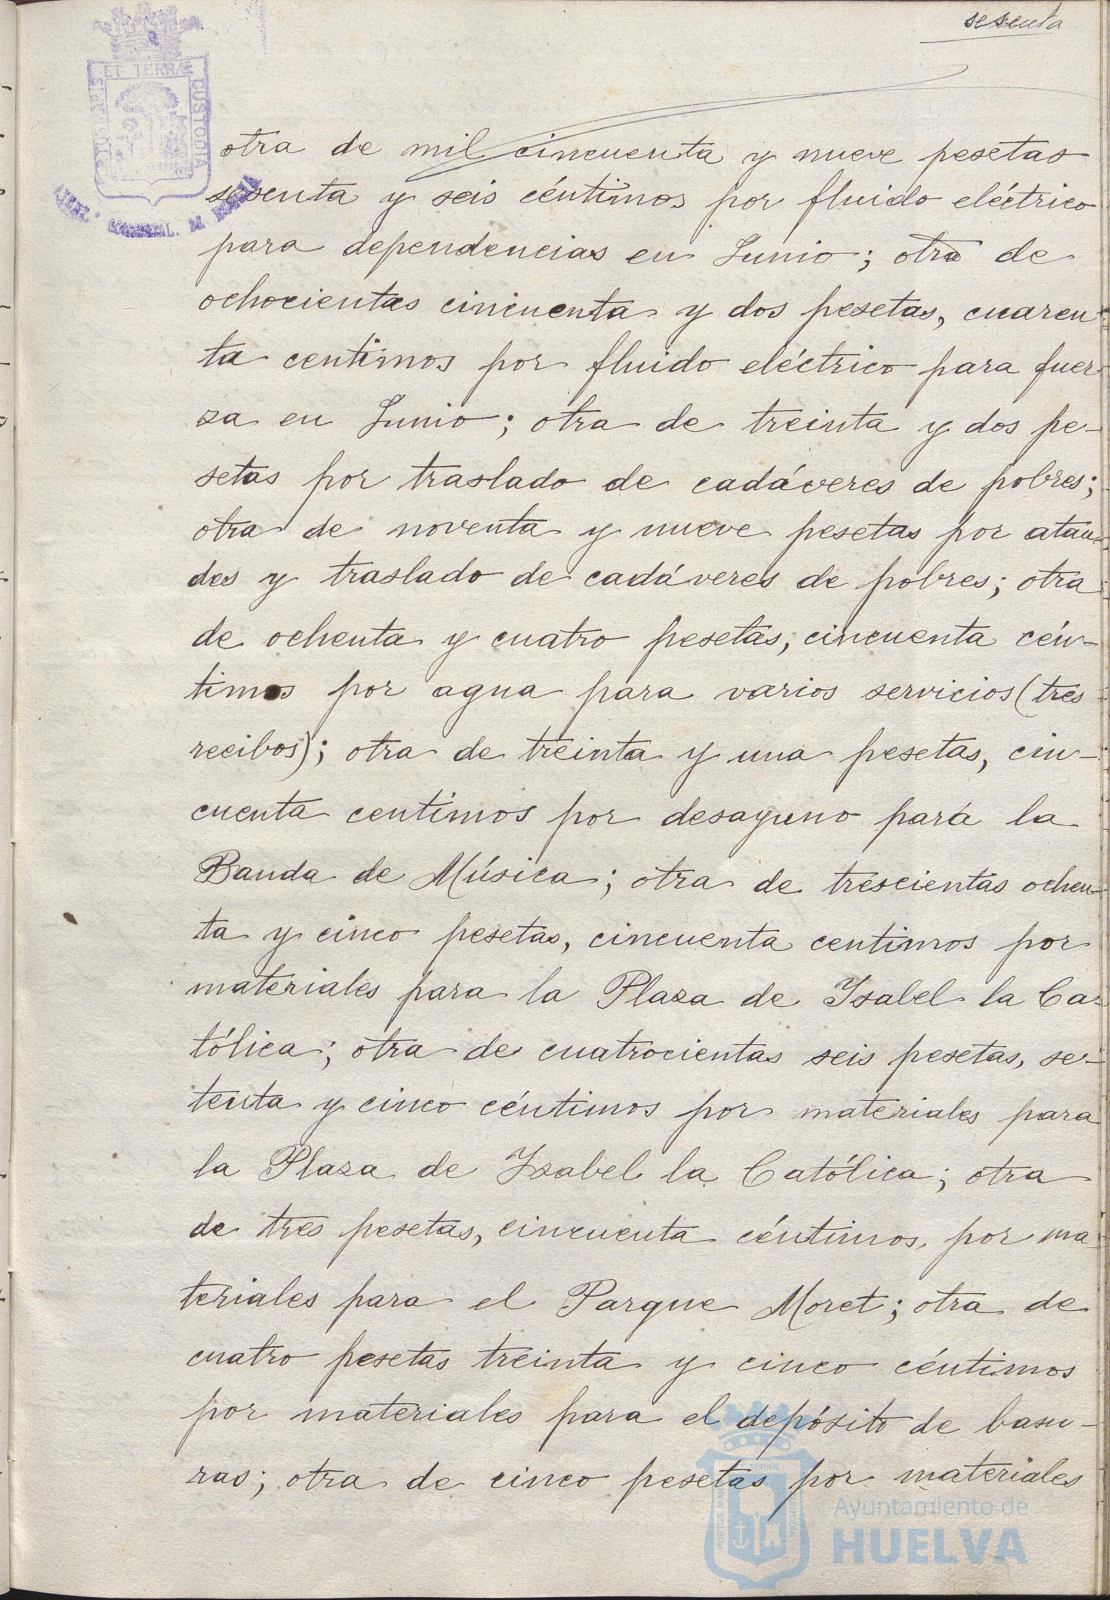 sesenta
ET TERRAE
CUSTODIA
otra de mil cincuenta y nueve pesetas
sesenta y seis céntimos por fluido eléctrico
para dependencias en Junio; otra de
ochocientas cincuenta y dos pesetas, cuaren-
ta centimos por fluido eléctrico para fuer-
za en Junio; otra de treinta y dos pe-
setas por traslado de cadáveres de pobres;
otra de noventa y nueve pesetas por atau-
des y traslado de cadáveres de pobres; otra
de ochenta y cuatro pesetas, cincuenta cén-
timos por agua para varios servicios (tres
recibos); otra de treinta y una pesetas, cin-
cuenta centimos por desayuno para la
Banda de Música; otra de trescientas ochen-
ta y cinco pesetas, cincuenta centimos por
materiales para la Plaza de Isabel la Ca-
tólica; otra de cuatrocientas seis pesetas, se-
tenta y cinco céntimos por materiales para
la Plaza de Isabel la Católica; otra
de tres pesetas, cincuenta céntimos, por ma
teriales para el Parque Moret; otra de
cuatro pesetas treinta y cinco céntimos
por materiales para el depósito de basu-
ras; otra de cinco pesetas por materiales
Ayuntamiento de
HUELVA